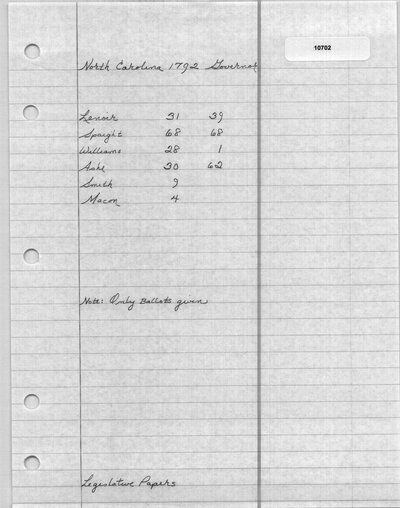 10702
North Carolina 1792 Governor
Lenoir 31 39
Spaight 68 68
Williams 28 1
Ashe 30 62
Smith 9
Macon 4
Note: Only Ballots given
Legislative Papers